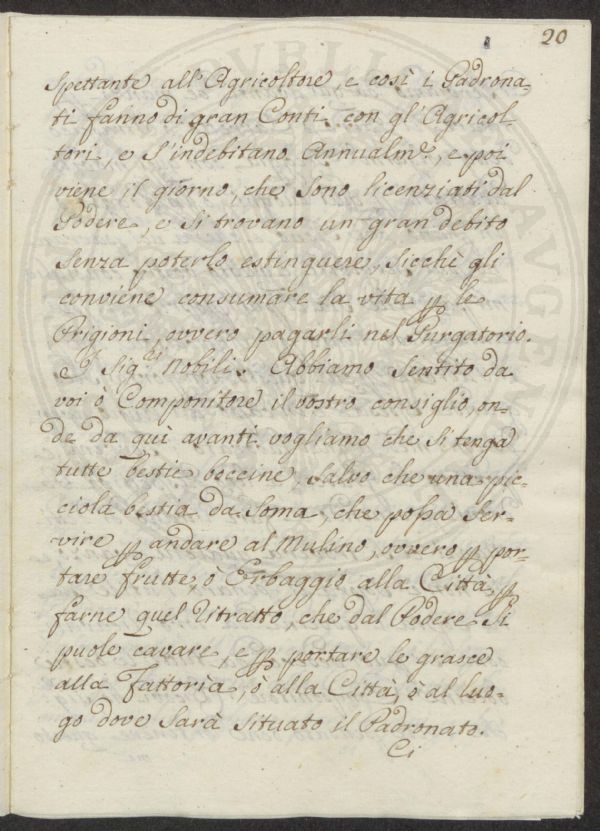 20
Spettante all'Agricoltore, e così i Padrona-
ti fanno di gran Conti con gl'Agricol-
tori, e s'indebitano Annualm.e, e poi
viene il giorno, che sono licenziati dal
Podere, e si trovano un gran debito
senza poterlo estinguere, sicchè gli
conviene consumare la vita p le
Prigioni, ovvero pagarli nel Purgatorio.
Sig.ri Nobili. Abbiamo sentito da
voi ò Componitore il vostro consiglio, on-
de da quì avanti vogliamo che si tenga
tutte bestie boccine, salvo che una pic-
ciola bestia da Soma, che possa ser-
vire p andare al Mulino, ovvero p por-
tare frutte, ò Erbaggio alla Città p
farne quel ritratto, che dal Podere si
puole cavare, e p portare le grasce
alla Fattoria, ò alla Città, ò al luo-
go dove sarà situato il Padronato.
Ci